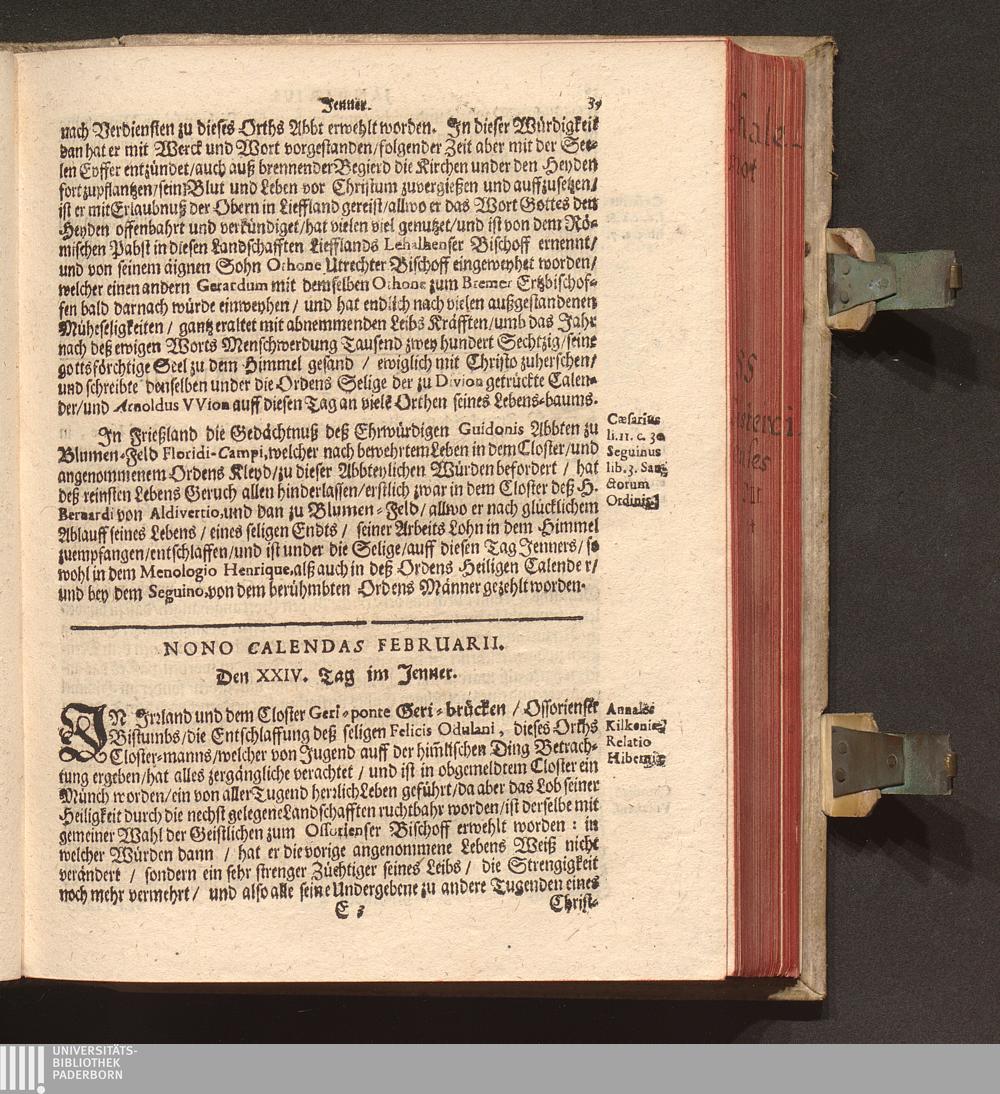 Jenner. 39
nach Verdiensten zu dieses Orths Abbt erwehlt worden. In dieser Würdigkeit
dan hat er mit Werck und Wort vorgestanden/folgender Zeit aber mit der See-
len Eyffer entzündet/auch auß brennender Begierd die Kirchen under den Heyden
fortzupflantzen/sein Blut und Leben vor Christum zuvergießen und auffzusetzen/
ist er mit Erlaubnuß der Obern in Lieffland gereist/allwo er das Wort Gottes den
Heyden offenbahrt und verkündiget/hat vielen viel genutzet/und ist von dem Rö-
mischen Pabst in diesen Landschafften Liefflands Lehalkenser Bischoff ernennt/
und von seinem äignen Sohn Othone Utrechter Bischoff eingeweyhet worden/
welcher einen andern Gerardum mit demselben Othone zum Bremer Ertzbischof-
fen bald darnach würde einweyhen/ und hat endlich nach vielen außgestandenen
Müheseligkeiten/ gantz eraltet mit abnemmenden Leibs Kräfften/umb das Jahr
nach deß ewigen Worts Menschwerdung Tausend zwey hundert Sechtzig/seine
gottsförchtige Seel zu dem Himmel gesand / ewiglich mit Christo zuherschen/
und schreibte denselben under die Ordens Selige der zu Divion getrückte Calen-
der/und Arnoldus VVion auff diesen Tag an viele Orthen seines Lebens-baums.
In Frießland die Gedächtnuß deß Ehrwürdigen Guidonis Abbten zu
Blumen-Feld Floridi-Campi,welcher nach bewehrtem Leben in dem Closter/und
angenommenem Ordens Kleyd/zu dieser Abbteylichen Würden befordert / hat
deß reinsten Lebens Geruch allen hinderlassen/erstlich zwar in dem Closter deß H.
Bernardi von Aldivertio,und dan zu Blumen-Feld/allwo er nach glücklichem
Ablauff seines Lebens/ eines seligen Endts/ seiner Arbeits Lohn in dem Himmel
zuempfangen/entschlaffen/und ist under die Selige/auff diesen Tag Jenners/ so
wohl in dem Menologio Henrique,alß auch in deß Ordens Heiligen Calender/
und bey dem Seguino,von dem berühmbten Ordens Männer gezehlt worden.
Cæsarius
li. 11. c. 30
Seguinus
lib. 3. San-
ctorum
Ordinis.
NONO CALENDAS FEBRUARII.
Den XXIV. Tag im Jenner.
IN Irrland und dem Closter Geri-ponte Geri-brücken / Ossorienser
Bistumbs/die Entschlaffung deß seligen Felicis Odulani, dieses Orths
Closter-manns/welcher von Jugend auff der him̃lischen Ding Betrach-
tung ergeben/hat alles zergängliche verachtet / und ist in obgemeldtem Closter ein
Münch worden/ein von aller Tugend herzlich Leben geführt/da aber das Lob seiner
Heiligkeit durch die nechst gelegene Landschafften ruchtbahr worden/ist derselbe mit
gemeiner Wahl der Geistlichen zum Ossorienser Bischoff erwehlt worden : in
welcher Würden dann / hat er die vorige angenommene Lebens Weiß nicht
verändert / sondern ein sehr strenger Züchtiger seines Leibs/ die Strengigkeit
noch mehr vermehrt/ und also alle seine Undergebene zu andere Tugenden eines
E 3 Christ-
Annales
Kilkeniæ
Relatio
Hiberniæ
UNIVERSITÄTS-
BIBLIOTHEK
PADERBORN